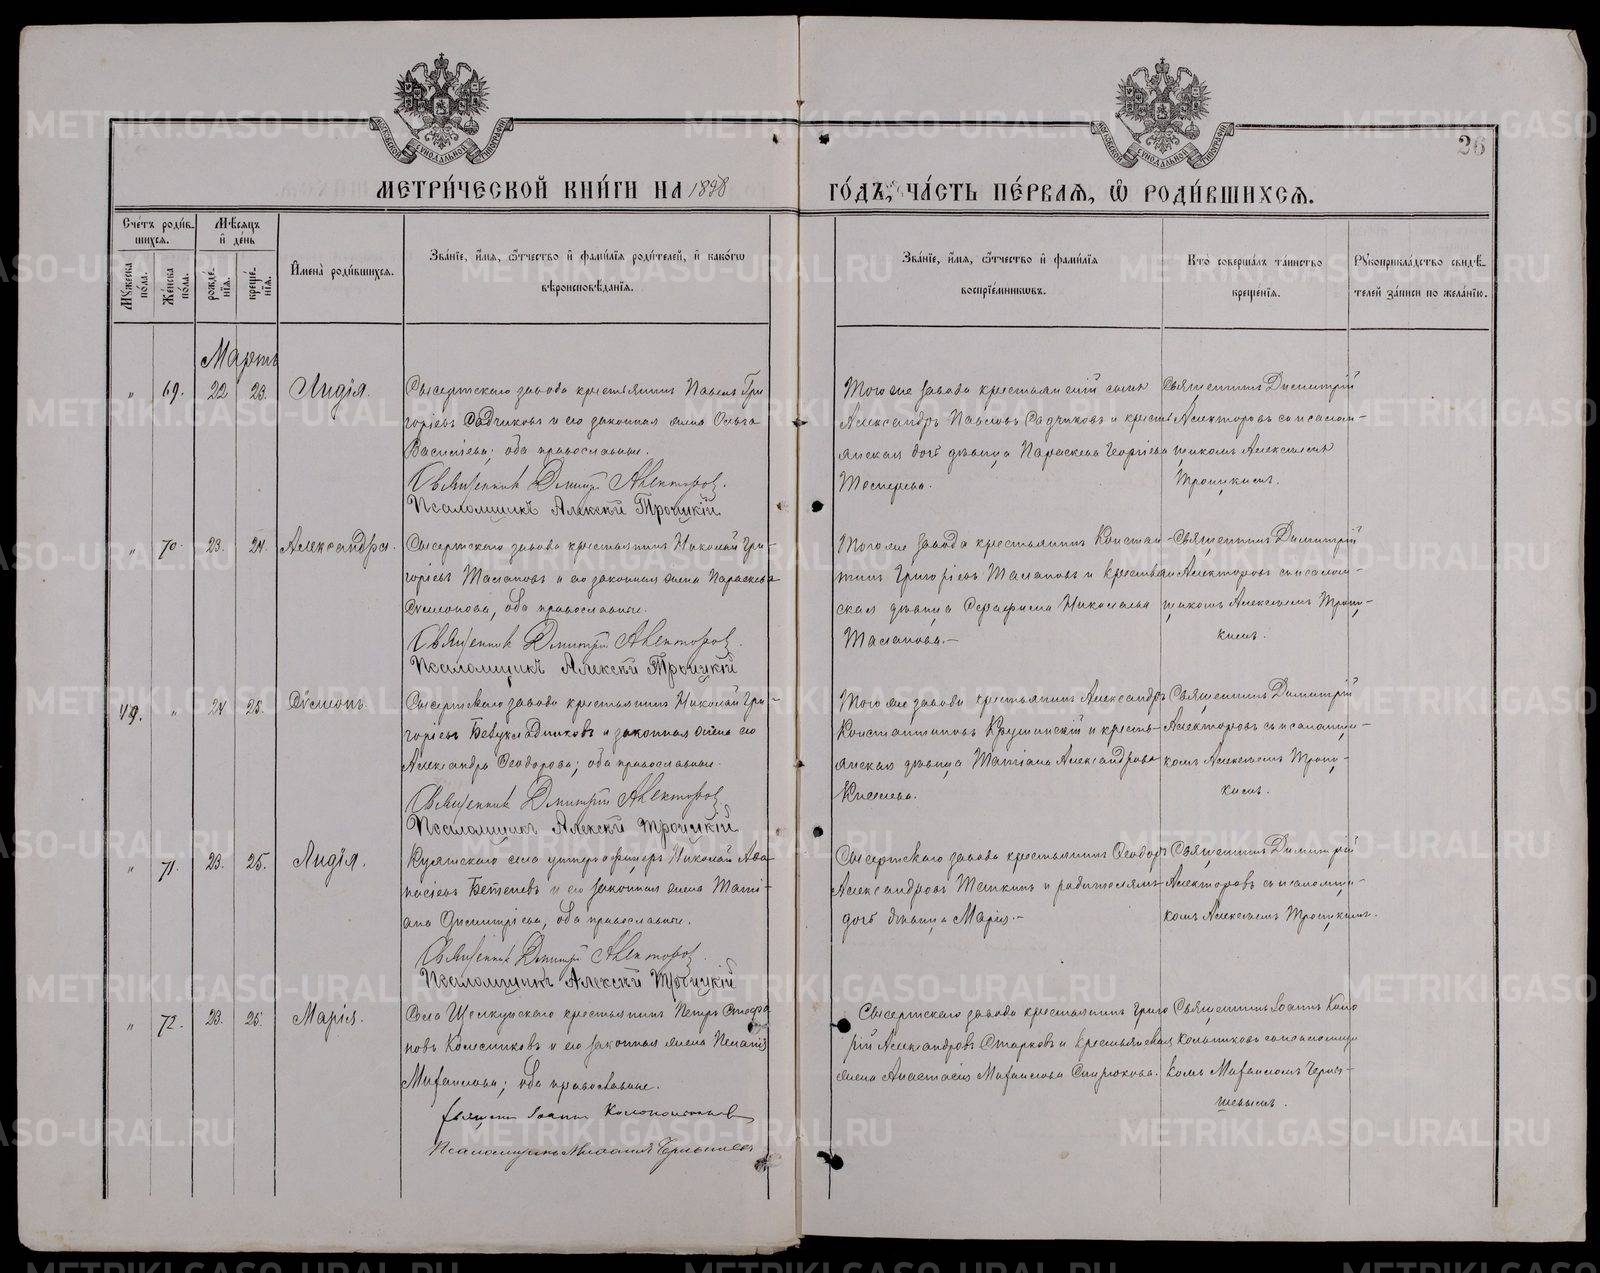 METRIKI.GASO-URAL.RU
26
МЕТРИ́ЧЕСКОЙ КНИ́ГИ НА 1898
ГО́ДЪ, ЧА́СТЬ ПЕ́РВАѦ, Ѽ РОДИ́ВШИХСѦ.
Сче́тъ роди́в-
шихся.
Му́жеска по́ла.
Же́нска по́ла.
Мѣ́сяцъ и де́нь
рожде́-нія.
креще́-нія.
И҆мена̀ роди́вшихся.
Зва́нїе, и҆́мя, ѻ҆́тчество и҆ фами́лїя роди́телей, и҆ како́гѡ
вѣроисповѣ́данїя.
Зва́нїе, и҆́мя, ѻ҆́тчество и҆ фами́лїя
воспрїе́мниковъ.
Кто̀ соверша́лъ та́инство
креще́нїя.
Рꙋкоприкла́дство свидѣ́-
телей за́писи по жела́нїю.
Мартъ
" 69. 22 23. Лидія.
Сысертскаго завода крестьянинъ Павелъ Гри
горіевъ Садчиковъ и его законная жена Ольга
Васильева; оба православные.
Священник Димитрій Алекторов.
Псаломщикъ Алексій Троицкій
Того же завода крестьянскій сынъ
Александръ Павловъ Садчиковъ и кресть
янская дочь дѣвица Параскева Георгіева
Священникъ Димитрій
Алекторовъ съ псалом-
щикомъ Алексѣемъ
Троицкимъ.
" 70. 23. 24. Александра.
Сысертскаго завода крестьянинъ Николай Гри-
горіевъ и его законная жена Параскева
Сѵмеонова, оба православные.
Священник Димитрій Алекторов.
Псаломщикъ Алексій Троицкій
Того же завода крестьянинъ Констан-
тинъ Григоріевъ и крестьян
ская дѣвица Серафима Николаева
Священникъ Димитрій
Алекторовъ съ псалом-
щикомъ Алексѣемъ Троиц-
кимъ.
49. " 24 25. Сѵмеонъ.
Сысертскаго завода крестьянинъ Николай Гри-
горіевъ и законная жена его
Александра Ѳеодорова; оба православные.
Священник Димитрій Алекторов.
Псаломщикъ Алексій Троицкій
Того же завода крестьянинъ Александръ
Константиновъ и кресть-
янская дѣвица Татіана Александрова
Киселева.
Священникъ Димитрій
Алекторовъ съ псаломщи-
комъ Алексѣемъ Троиц-
кимъ.
" 71. 23. 25. Лидія.
села унтеръ-офицеръ Николай Аѳа
насіевъ и его законная жена Тати-
ана Димитріева, оба православные.
Священник Димитрій Алекторов.
Псаломщикъ Алексій Троицкій
Сысертскаго завода крестьянинъ Ѳеодоръ
Александровъ и
дочь дѣвица Марія.-
Священникъ Димитрій
Алекторовъ съ псаломщи-
комъ Алексѣемъ Троицкимъ.
" 72. 23. 25. Марія.
Села Щелкунскаго крестьянинъ Петръ Стефа
новъ Колесниковъ и его законная жена Пелагія
Михаилова; оба православные.
Псаломщикъ
Сысертскаго завода крестьянинъ Григо
рій Александровъ Старковъ и крестьянская
жена Анастасія Михаилова
Священникъ Іоаннъ
съ псаломщи
комъ Михаиломъ